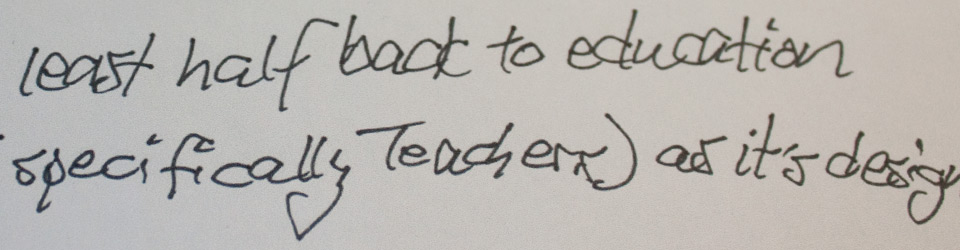 least half back to education
specifically Teachers) as it's design